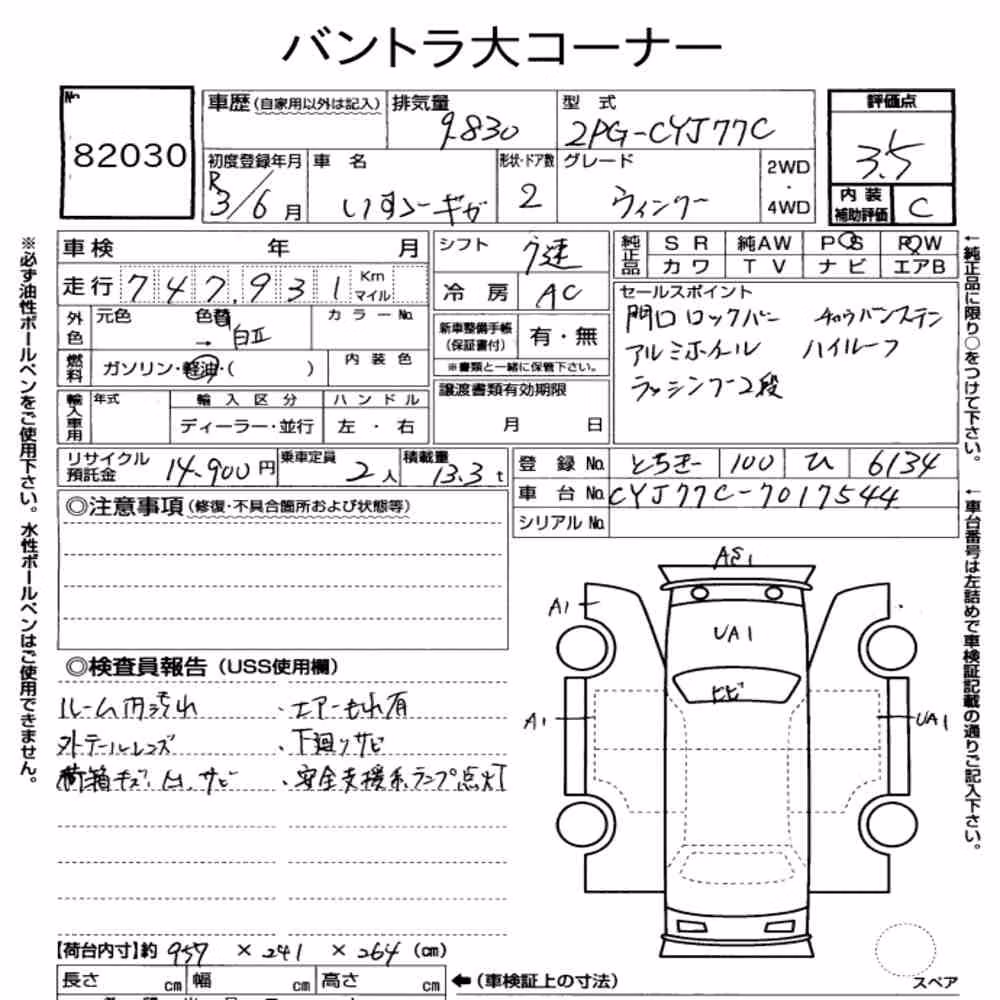 バントラ大コーナー
No. 82030
車歴(自家用以外は記入) 排気量 9.830 型式 2PG-CYJ77C
評価点 3.5
初度登録年月 R3/6月 車名 いすゞギガ 形状・ドア数 2 グレード ウィング 2WD・4WD
内装補助評価 C
車検 年 月
シフト 7速
純正品 SR 純AW PS PW
カワ TV ナビ エアB
走行 747,931 Km マイル
冷房 AC
外色 元色 色替 → 白II カラーNo.
新車整備手帳(保証書付) 有・無
※書類と一緒に保管下さい。
燃料 ガソリン・軽油・( ) 内装色
セールスポイント
門口ロックバー
アルミホイール ハイルーフ
ラッシング2段
輸入車用 年式 輸入区分 ハンドル
ディーラー・並行 左・右
譲渡書類有効期限
月 日
リサイクル預託金 14.900円 乗車定員 2人 積載量 13.3t
登録No. とちぎ 100 ひ 6134
車台No. CYJ77C-7017544
シリアルNo.
◎注意事項(修復・不具合箇所および状態等)
◎検査員報告(USS使用欄)
ルーム内汚れ 、エアーもれ有
外テールレンズ ・下廻りサビ
荷箱キズ、凹、サビ ・安全支援系ランプ点灯
AS1
A1
UA1
ヒビ
A1
UA1
スペア
【荷台内寸】約 957 × 241 × 264 (cm)
長さ cm 幅 cm 高さ cm ←(車検証上の寸法)
※必ず油性ボールペンをご使用下さい。水性ボールペンはご使用できません。
←純正品に限り○をつけて下さい。
←車台番号は左詰めで車検証記載の通りご記入下さい。